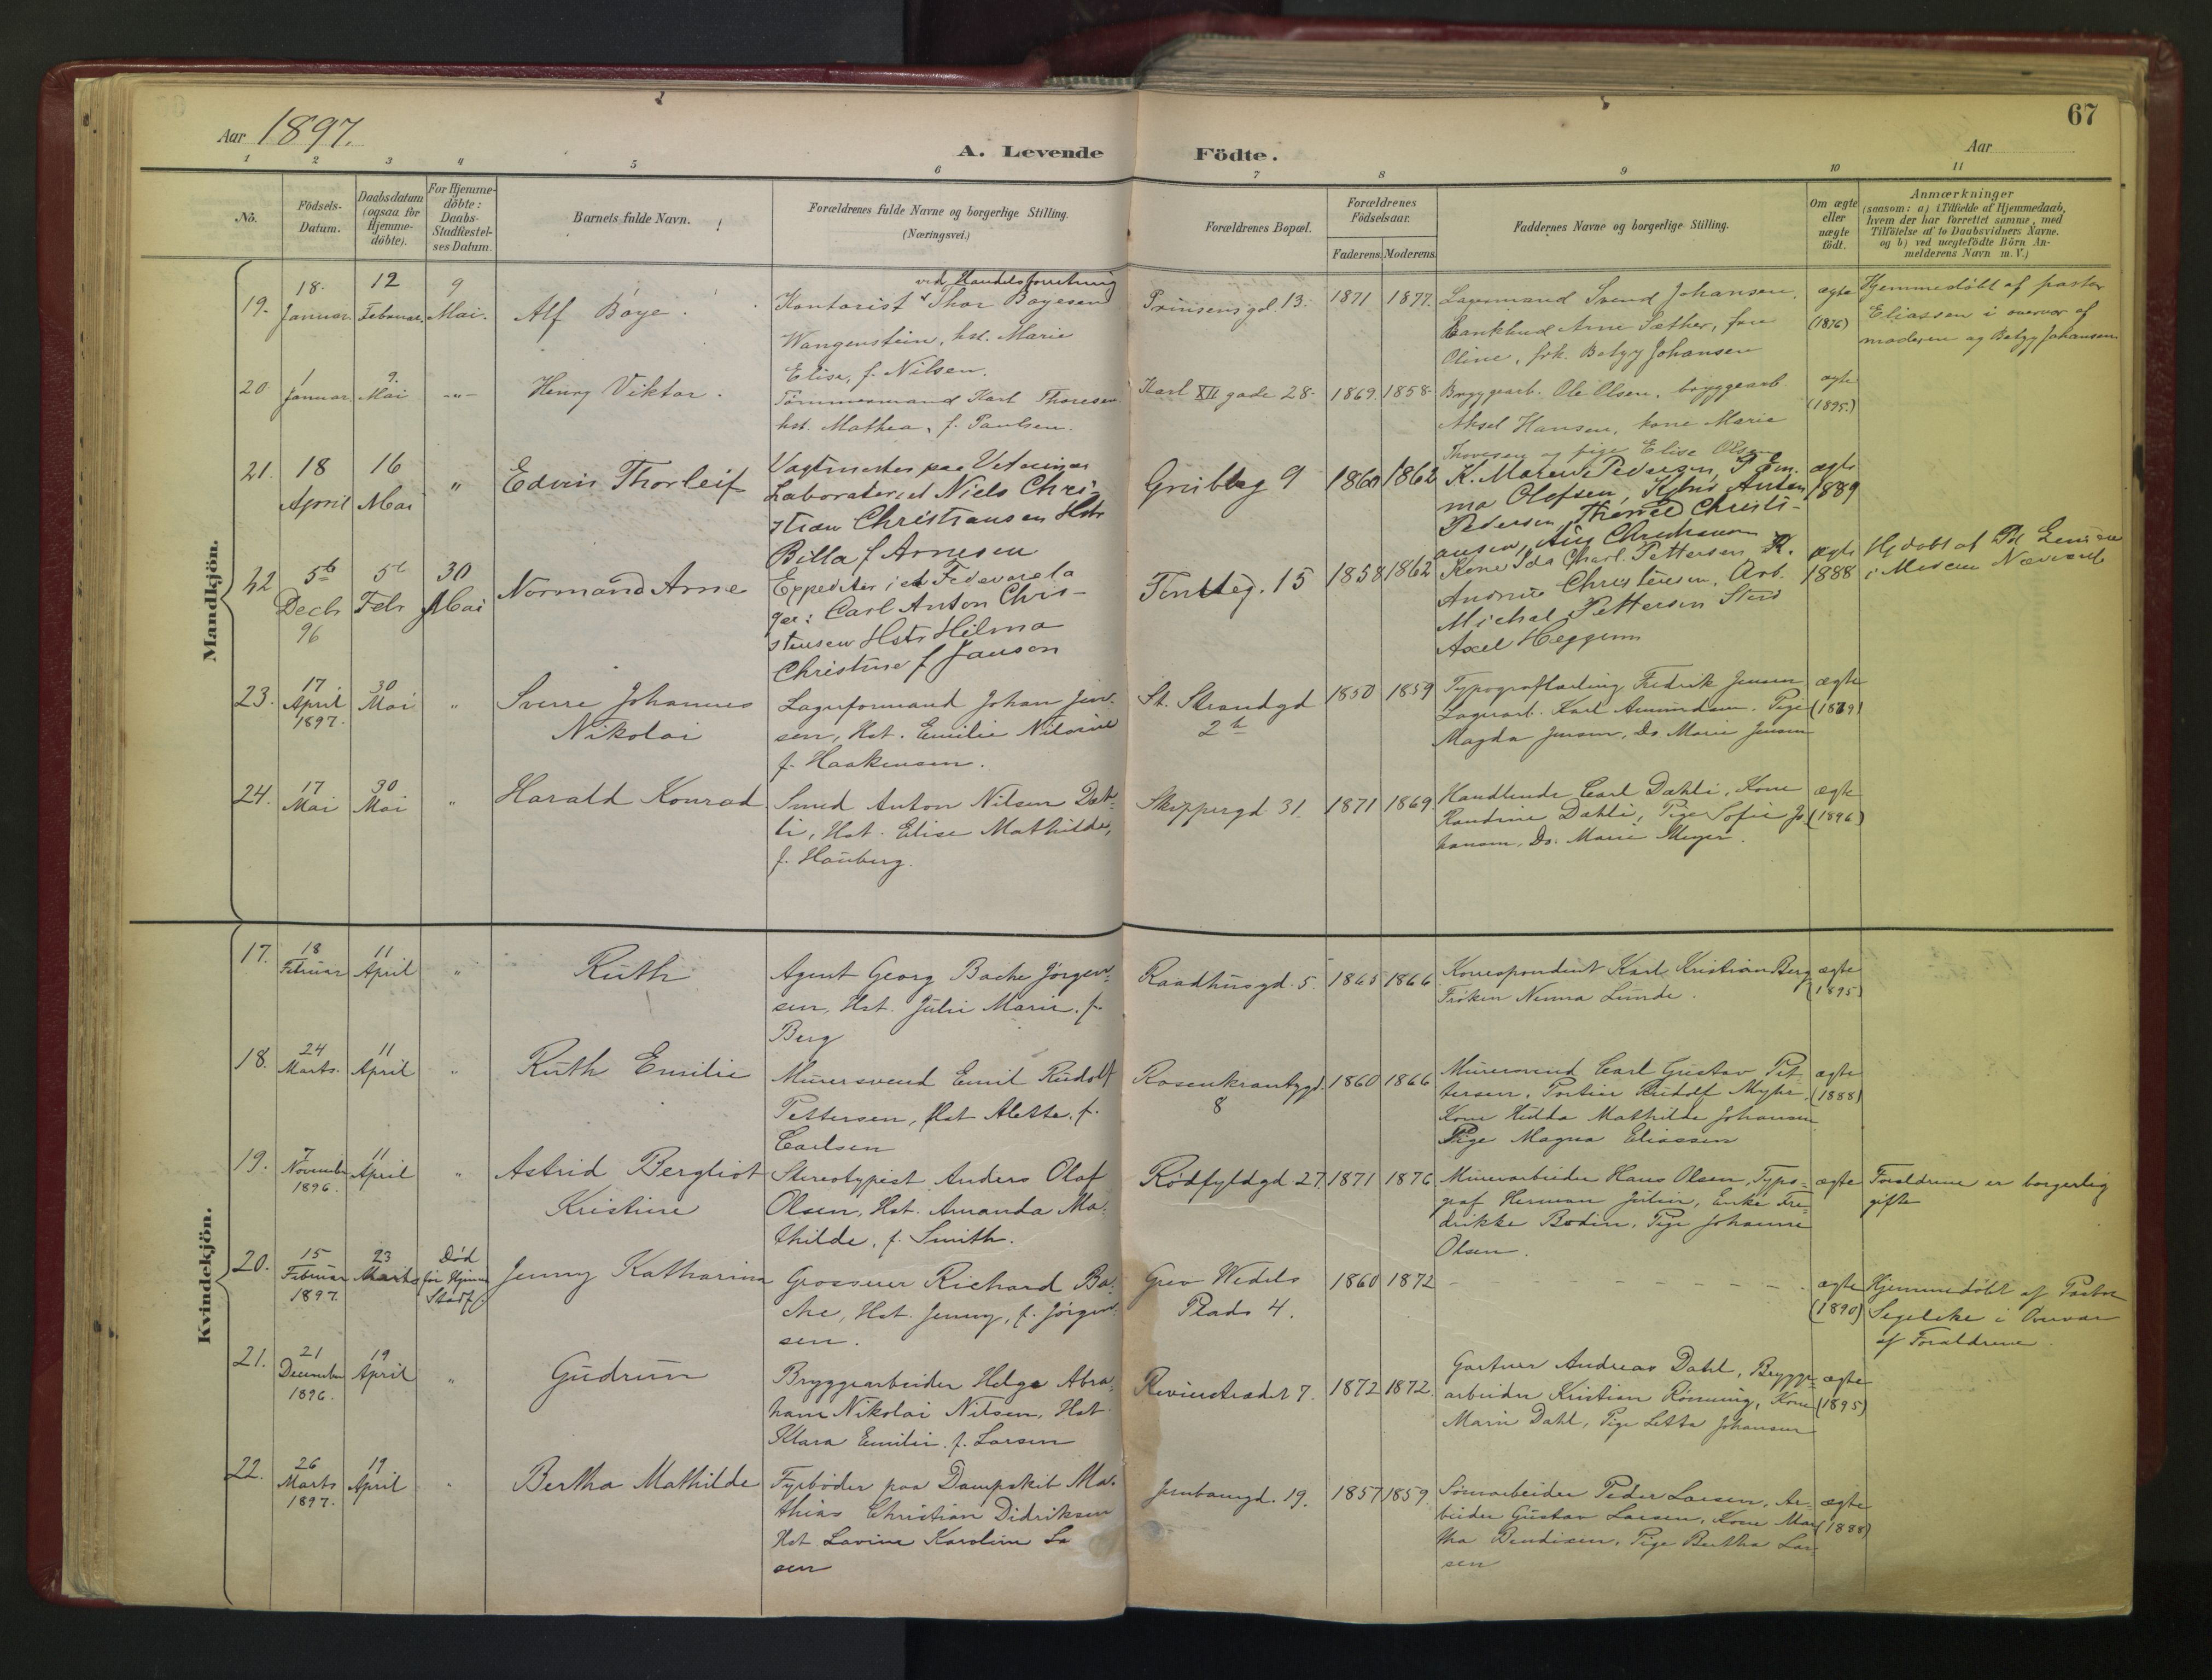 67
Aar 1897.
A. Levende Födte.
Aar
1 2 3 4 5 6 7 8 9 10 11
No.
Födsels-
Datum.
Daabsdatum
(ogsaa for
Hjemme-
döbte).
For Hjemme-
döbte:
Daabs-
Stadfæstel-
ses Datum.
Barnets fulde Navn.
Forældrenes fulde Navne og borgerlige Stilling.
(Næringsvei.)
Forældrenes Bopæl.
Forældrenes
Födselsaar.
Faderens. Moderens.
Faddernes Navne og borgerlige Stilling.
Om ægte
eller
uægte
födt.
Anmærkninger
(saasom: a) i Tilfælde af Hjemmedaab,
hvem der har forrettet samme, med
Tilföielse af to Daabsvidners Navne.
og b) ved uægtefödte Börn An-
melderens Navn m. V.)
Mandkjön.
19.
18.
Januar.
12
Februar.
9
Mai.
Alf Böye.
ved Handelsforretning
Kontorist Thor Boyesen
Wangenstein, hst. Marie
Elise, f. Nilsen.
Prinsensgd. 13.
1871 1877.
Lagermand Svend Johansen,
Bankbud Arne Sæther, frue
Oline, frk. Betzy Johansen
ægte
(1896)
Hjemmedöbt af pastor
Eliassen i overvær af
moderen og Betzy Johansen
20.
1
Januar.
9.
Mai
-"-
Henry Viktor.
Tömmermand Karl Thoresen
hst. Mathea, f. Paulsen.
Karl XII gade 28.
1869. 1858.
Bryggearb. Ole Olsen, bryggearb.
Aksel Hansen, kone Marie
Thoresen og pige Elise Olsen
ægte
(1895.)
21.
18
April
16
Mai
"
Edvin Thorleif
Vagtmester paa Veterinær
Laboratoriet Niels Chri-
stian Christiansen Hstr
Billa f Arnesen
Grübbeg 9
1860 1862
K. Maren Pedersen, P Em-
ma Olafsen, Anton
Pedersen, Christi-
ansen, Aug Christiansen
ægte
1889
5te
Decbr
96
5te
Febr
30
Mai
Normand Arne
Expeditør i et Fedevarela
ger: Carl Anton Chri-
stensen Hstr Hilma
Christine f Janson
Tomteg. 15
1858 1862
Kone Ida Charl. Pettersen K.
Andrine Christensen, Arb.
Michal Pettersen Sted
Axel Heggem
ægte
1888
23.
17
April
1897.
30
Mai
"
Sverre Johannes
Nikolai
Lagerformand Johan Jen-
sen, Hst. Emilie Nilsine
f. Haakensen.
St. Strandgd
2 b
1850 1859
Typograflærling Fredrik Jensen
Lagerarb. Karl Amundsen. Pige
Magda Jensen, Do Marie Jensen
ægte
24.
17
Mai
30
Mai
"
Harald Konrad
Smed Anton Nilsen Dah-
li, Hst. Elise Mathilde,
f. Hauberg.
Skippergd 31.
1871 1869.
Handlende Carl Dahli, Kone
Randine Dahli, Pige Sofie Jo-
hansen, Do. Marie Meyer.
ægte
(1896)
Kvindekjön.
17.
18
Februar
11
April
"
Ruth
Agent Georg Bache Jörgen-
sen, Hst. Julie Marie, f.
Berg
Raadhusgd. 5.
1865 1866
Korrespondent Karl Kristian Berg
Fröken Nenna Lunde.
ægte
(1895)
18.
24
Marts.
11
April
"
Ruth Emilie
Murersvend Emil Rudolf
Pettersen, Hst Alette, f.
Carlsen
Rosenkrantzgd.
8
1860 1866
Murersvend Carl Gustav Pet-
tersen, Portier Rudolf Myhr.
Kone Hulda Mathilde Johansen
Pige Magna Eliassen
ægte
(1888)
19.
7
November
1896.
11
April
"
Astrid Bergliot
Kristine
Stereotypist Anders Olaf
Olsen, Hst. Amanda Ma-
thilde, f. Smith.
Rödfyldgd 27.
1871 1876
Murerarbeider Hans Olsen, Typo-
graf Herman Julin, Enke Fre-
drikke Bodin, Pige Johanne
Olsen.
ægte
Forældrene er borgerlig
gifte
20.
15
Februar
1897.
23
Marts
Död
för Hjemme
Stadf.
Jenny Katharina
Grosserer Richard Ba-
che, Hst. Jenny, f. Jörgen-
sen.
Grev Wedels
Plads 4.
1860 1872
ægte
(1890)
Hjemmedöbt af Pastor
Segelcke i Overvær
af Forældrene
21.
21
December
1896.
19
April
"
Gudrun
Bryggearbeider Helge Abra-
ham Nikolai Nilsen, Hst
Klara Emilie f. Larsen
Revierstrædet 7.
1872 1872.
Gartner Andreas Dahl, Brygge-
arbeider Kristian Rönning, Kone
Marie Dahl, Pige Letta Johansen
ægte
(1895)
22.
26
Marts
1897.
19
April
"
Bertha Mathilde
Fyrböder paa Dampskib Ma-
thias Christian Didriksen
Hst Lovine Karoline La
sen
Jernbanegd. 19.
1857 1859.
Peder Larsen, Ar-
beider Gustav Larsen, Kone Mar-
tha Bendixen, Pige Bertha Lar-
sen
ægte
(1888)